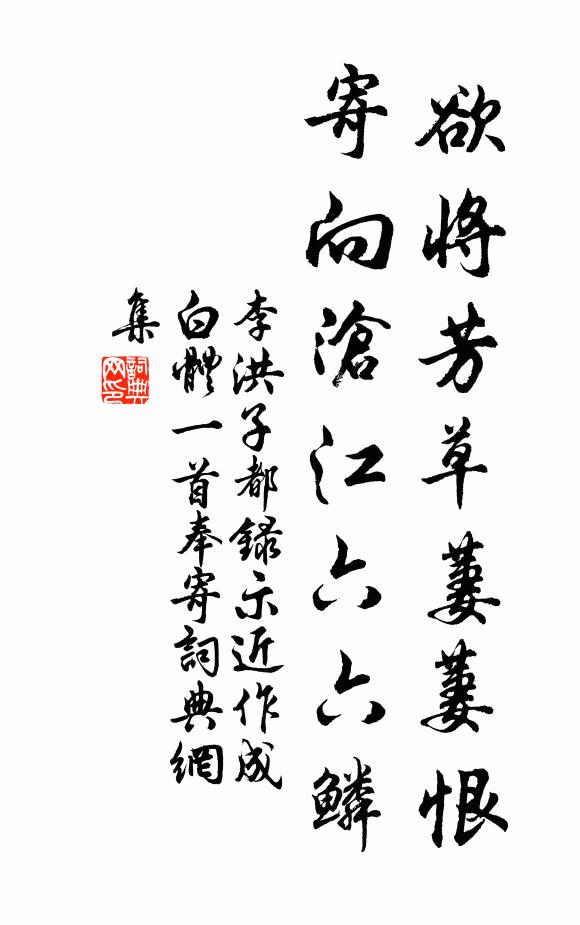 欲將芳草萋萋恨
寄向滄江六六鱗
李洪子都錄示近作成
白體一首奉寄詞典網
集
詞典
网印